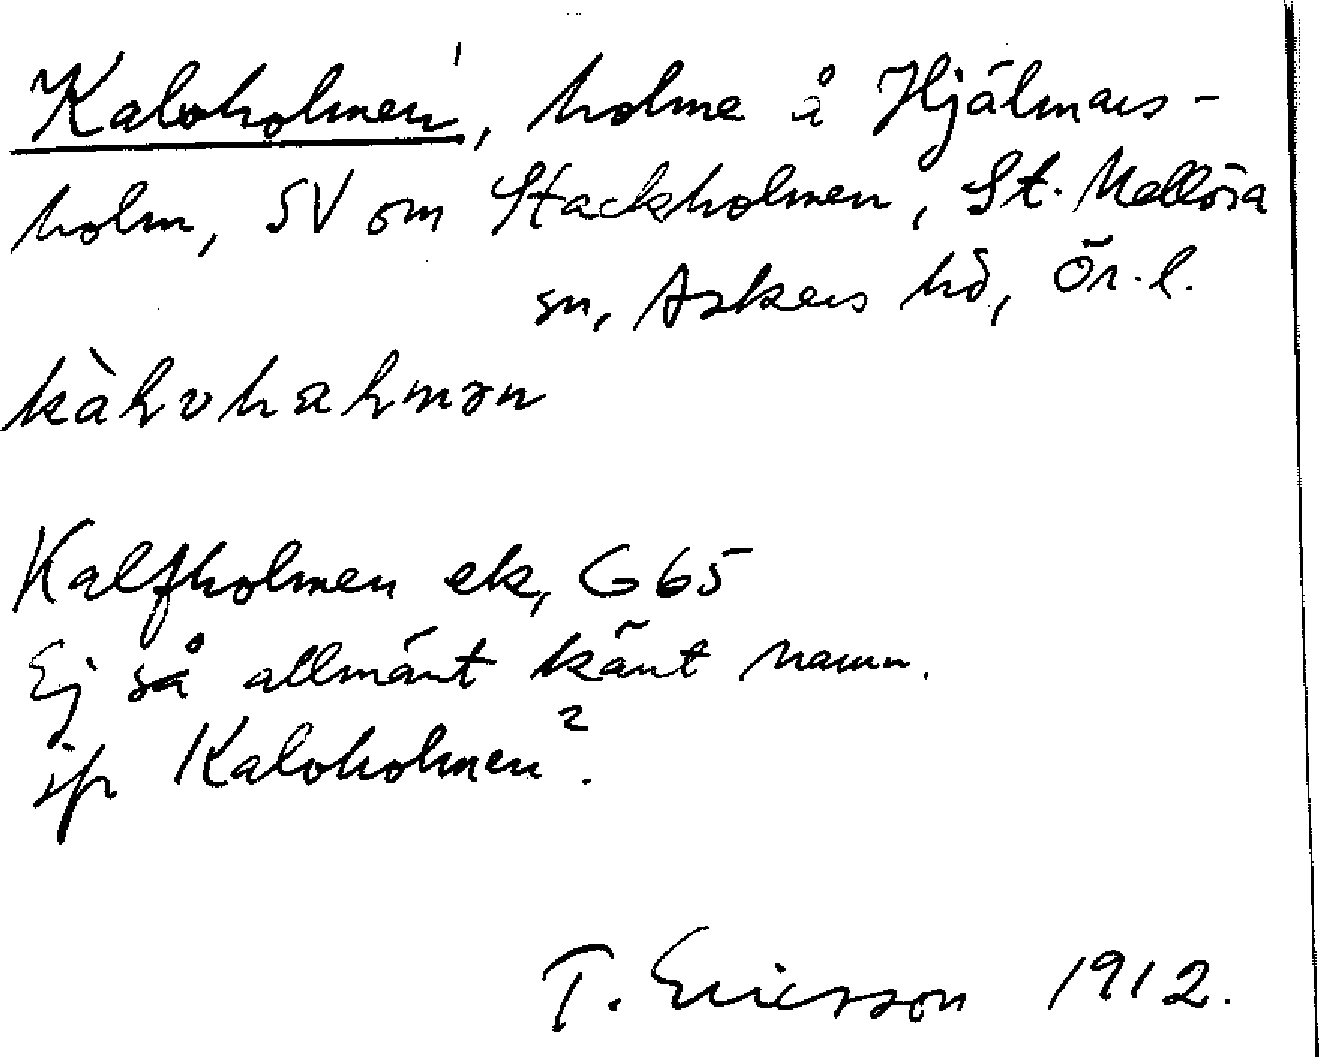 Kalvholmen¹, holme å Hjälmars-
holm, SV om Stackholmen, St. Mellösa
sn, Askers hd, Ör. l.
kàlvhalmən
Kalfholmen ek, G65
Ej så allmänt känt namn.
jfr Kalvholmen².
T. Ericsson 1912.